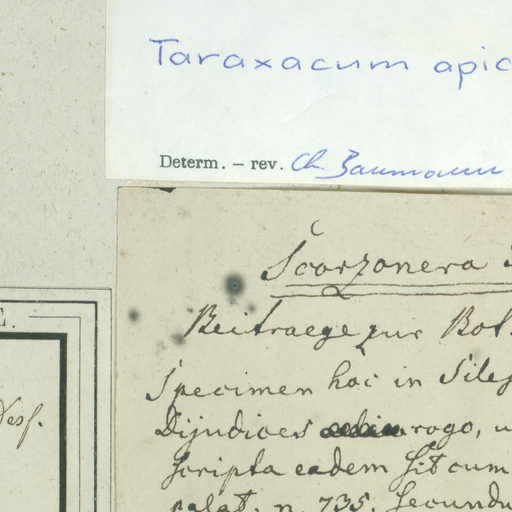 Taraxacum apic
Determ. – rev. Ch. Baumann
Scorzonera
Beitraege zur Bot.
Specimen hoc in Siles
Dijudices rogo, u
E.
Desf.
scripta eadem sit cum
palat. n. 735. secundu